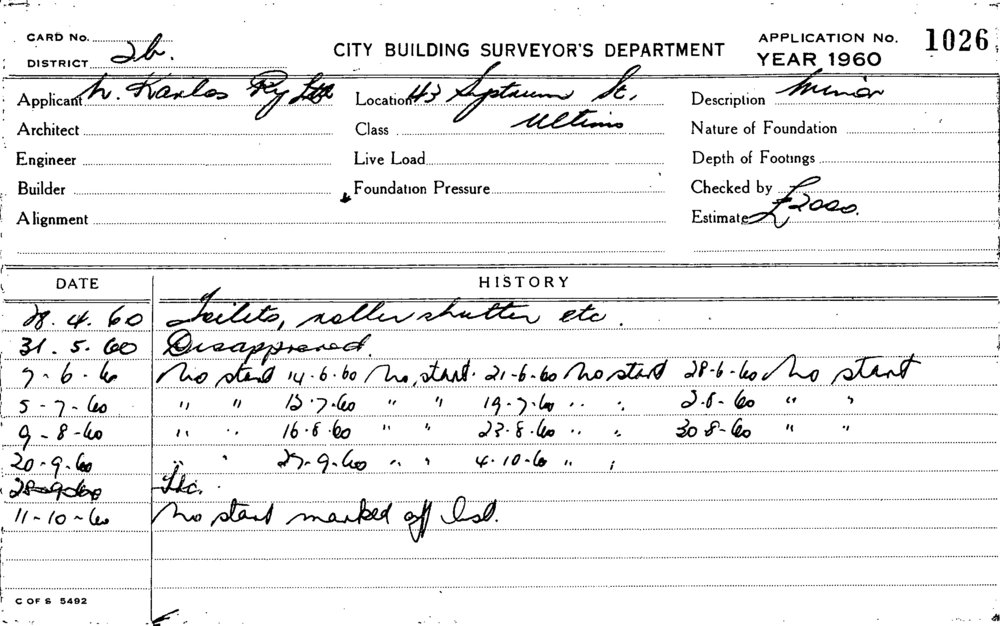 CARD No. CITY BUILDING SURVEYOR'S DEPARTMENT APPLICATION No. 1026
DISTRICT 2b. YEAR 1960
Applicant N. Karlos Pty Ltd Location 43 St, Description Minor
Architect Class Ultimo Nature of Foundation
Engineer Live Load Depth of Footings
Builder Foundation Pressure Checked by
Alignment Estimate £2000.
DATE HISTORY
28. 4. 60 Toilets, roller shutter etc.
31. 5. 60 Disapproved.
7-6-60 No start 14.6.60 No start. 21-6-60 No start 28-6-60 No start
5-7-60 " " 12.7.60 " " 19-7-60 " " 2-8-60 " "
9-8-60 " " 16.8.60 " " 23.8.60 " " 30-8-60 " "
20-9-60 " " 27-9-60 " " 4-10-60 " "
28-9-60
11-10-60 No start marked off list.
C OF S 5492